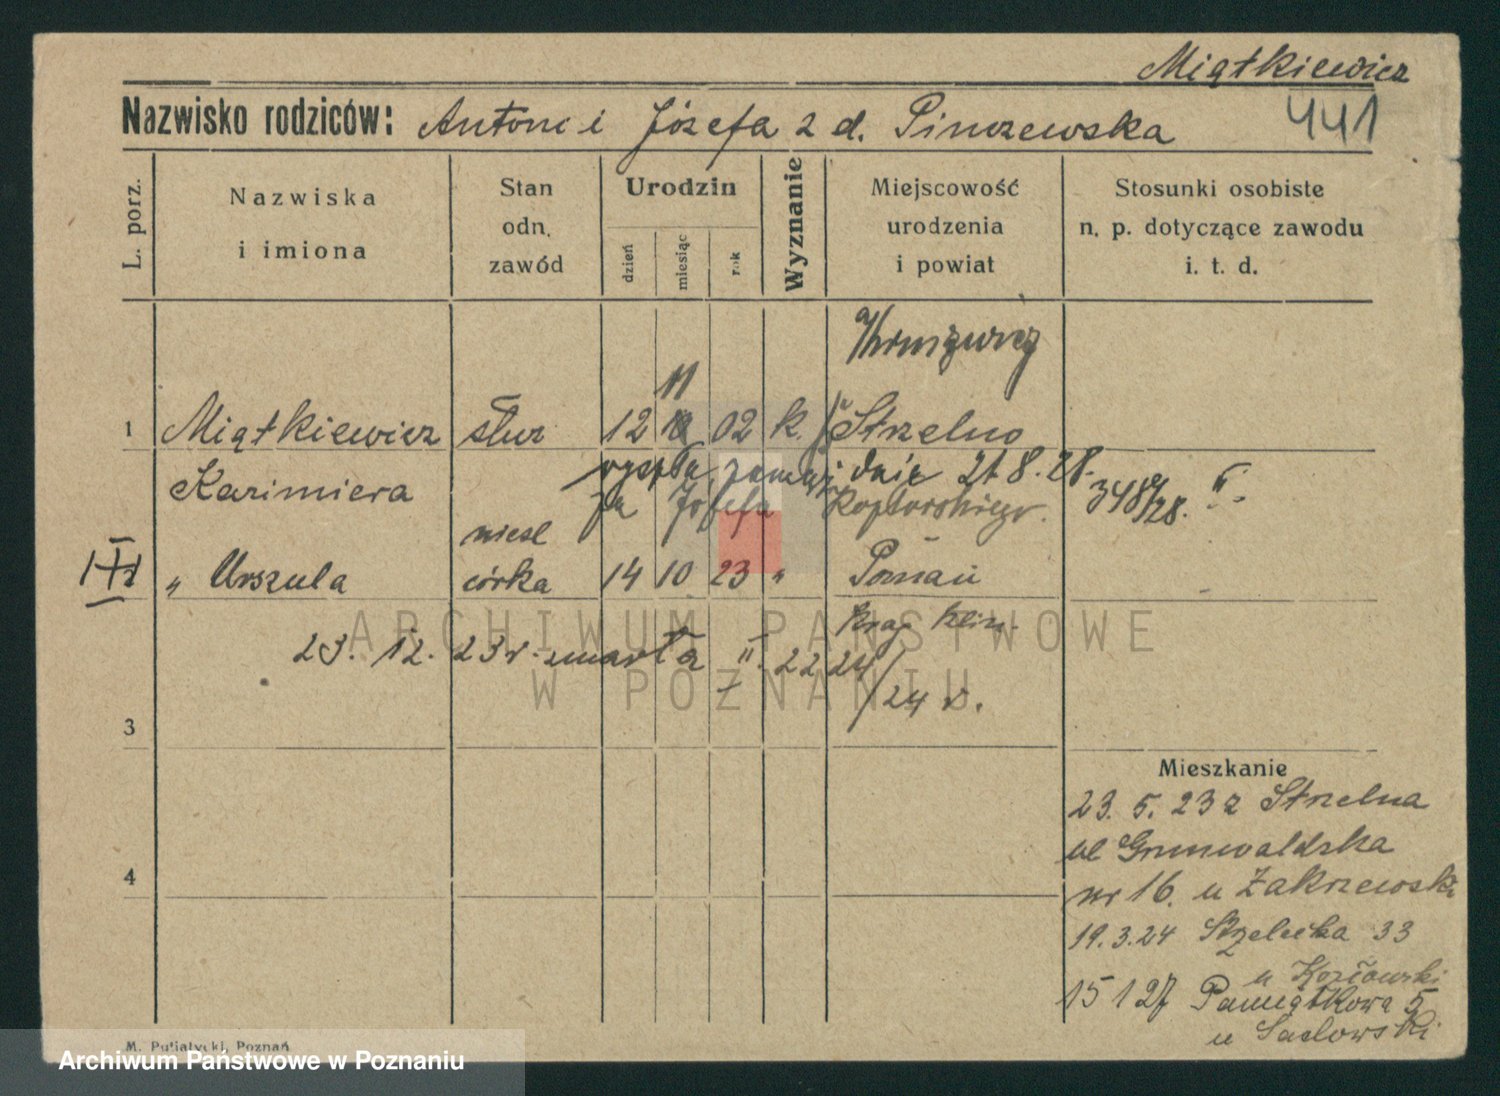 Miątkiewicz
Nazwisko rodziców: Antoni i Józefa z d. Pinczewska
441
L. porz.
Nazwiska
i imiona
Stan
odn.
zawód
Urodzin
dzień
miesiąc
rok
Wyznanie
Miejscowość
urodzenia
i powiat
Stosunki osobiste
n. p. dotyczące zawodu
i. t. d.
11
1 Miątkiewicz służ 12 02 k. Strzelno
Kazimiera
dnia 21 8. 28.
za Józefa Koptorskiego. 348/28. II.
niesl
" Urszula córka 14 10 23 " Poznań
23. 12. 23 r. zmarła II. 22 24
/24 r.
3
4
Mieszkanie
23. 5. 23 z Strzelna
ul Grunwaldzka
nr 16. u Zakrzewski
19. 3. 24 Strzelecka 33
u Kozłowski
15 1 27 Pamiątkowa 5
u Sadowski
ARCHIWUM PAŃSTWOWE
W POZNANIU
M. Putiatycki, Poznań
Archiwum Państwowe w Poznaniu